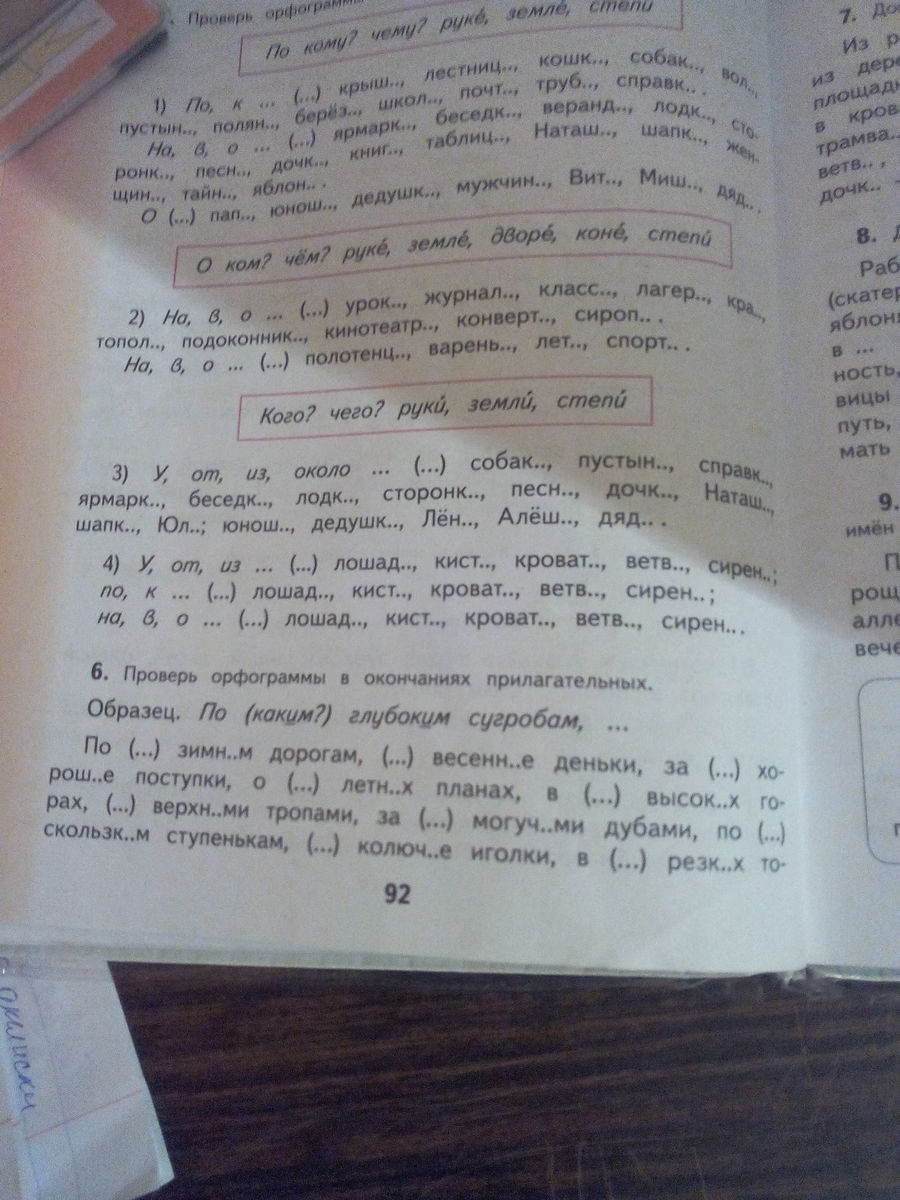 Проверь орфограммы
По кому? чему? руке́, земле́, степи́
1) По, к ... (...) крыш.., лестниц.., кошк.., собак.., вол..,
пустын.., полян.., берёз.., школ.., почт.., труб.., справк.. .
На, в, о ... (...) ярмарк.., беседк.., веранд.., лодк.., сто-
ронк.., песн.., дочк.., книг.., таблиц.., Наташ.., шапк.., жен-
щин.., тайн.., яблон.. .
О (...) пап.., юнош.., дедушк.., мужчин.., Вит.., Миш.., дяд.. .
О ком? чём? руке́, земле́, дворе́, коне́, степи́
2) На, в, о ... (...) урок.., журнал.., класс.., лагер.., кра..,
топол.., подоконник.., кинотеатр.., конверт.., сироп.. .
На, в, о ... (...) полотенц.., варень.., лет.., спорт.. .
Кого? чего? руки́, земли́, степи́
3) У, от, из, около ... (...) собак.., пустын.., справк..,
ярмарк.., беседк.., лодк.., сторонк.., песн.., дочк.., Наташ..,
шапк.., Юл..; юнош.., дедушк.., Лён.., Алёш.., дяд.. .
4) У, от, из ... (...) лошад.., кист.., кроват.., ветв.., сирен..;
по, к ... (...) лошад.., кист.., кроват.., ветв.., сирен..;
на, в, о ... (...) лошад.., кист.., кроват.., ветв.., сирен.. .
6. Проверь орфограммы в окончаниях прилагательных.
Образец. По (каким?) глубоким сугробам, ...
По (...) зимн..м дорогам, (...) весенн..е деньки, за (...) хо-
рош..е поступки, о (...) летн..х планах, в (...) высок..х го-
рах, (...) верхн..ми тропами, за (...) могуч..ми дубами, по (...)
скользк..м ступенькам, (...) колюч..е иголки, в (...) резк..х то-
92
7.
Из
из дере
площадк
в кров
трамва..
ветв.. ,
дочк.. -
8.
Раб
(скатер
яблоня
в ...
ность,
вицы
путь,
мать
9.
имён
П
рощ
алле
вече